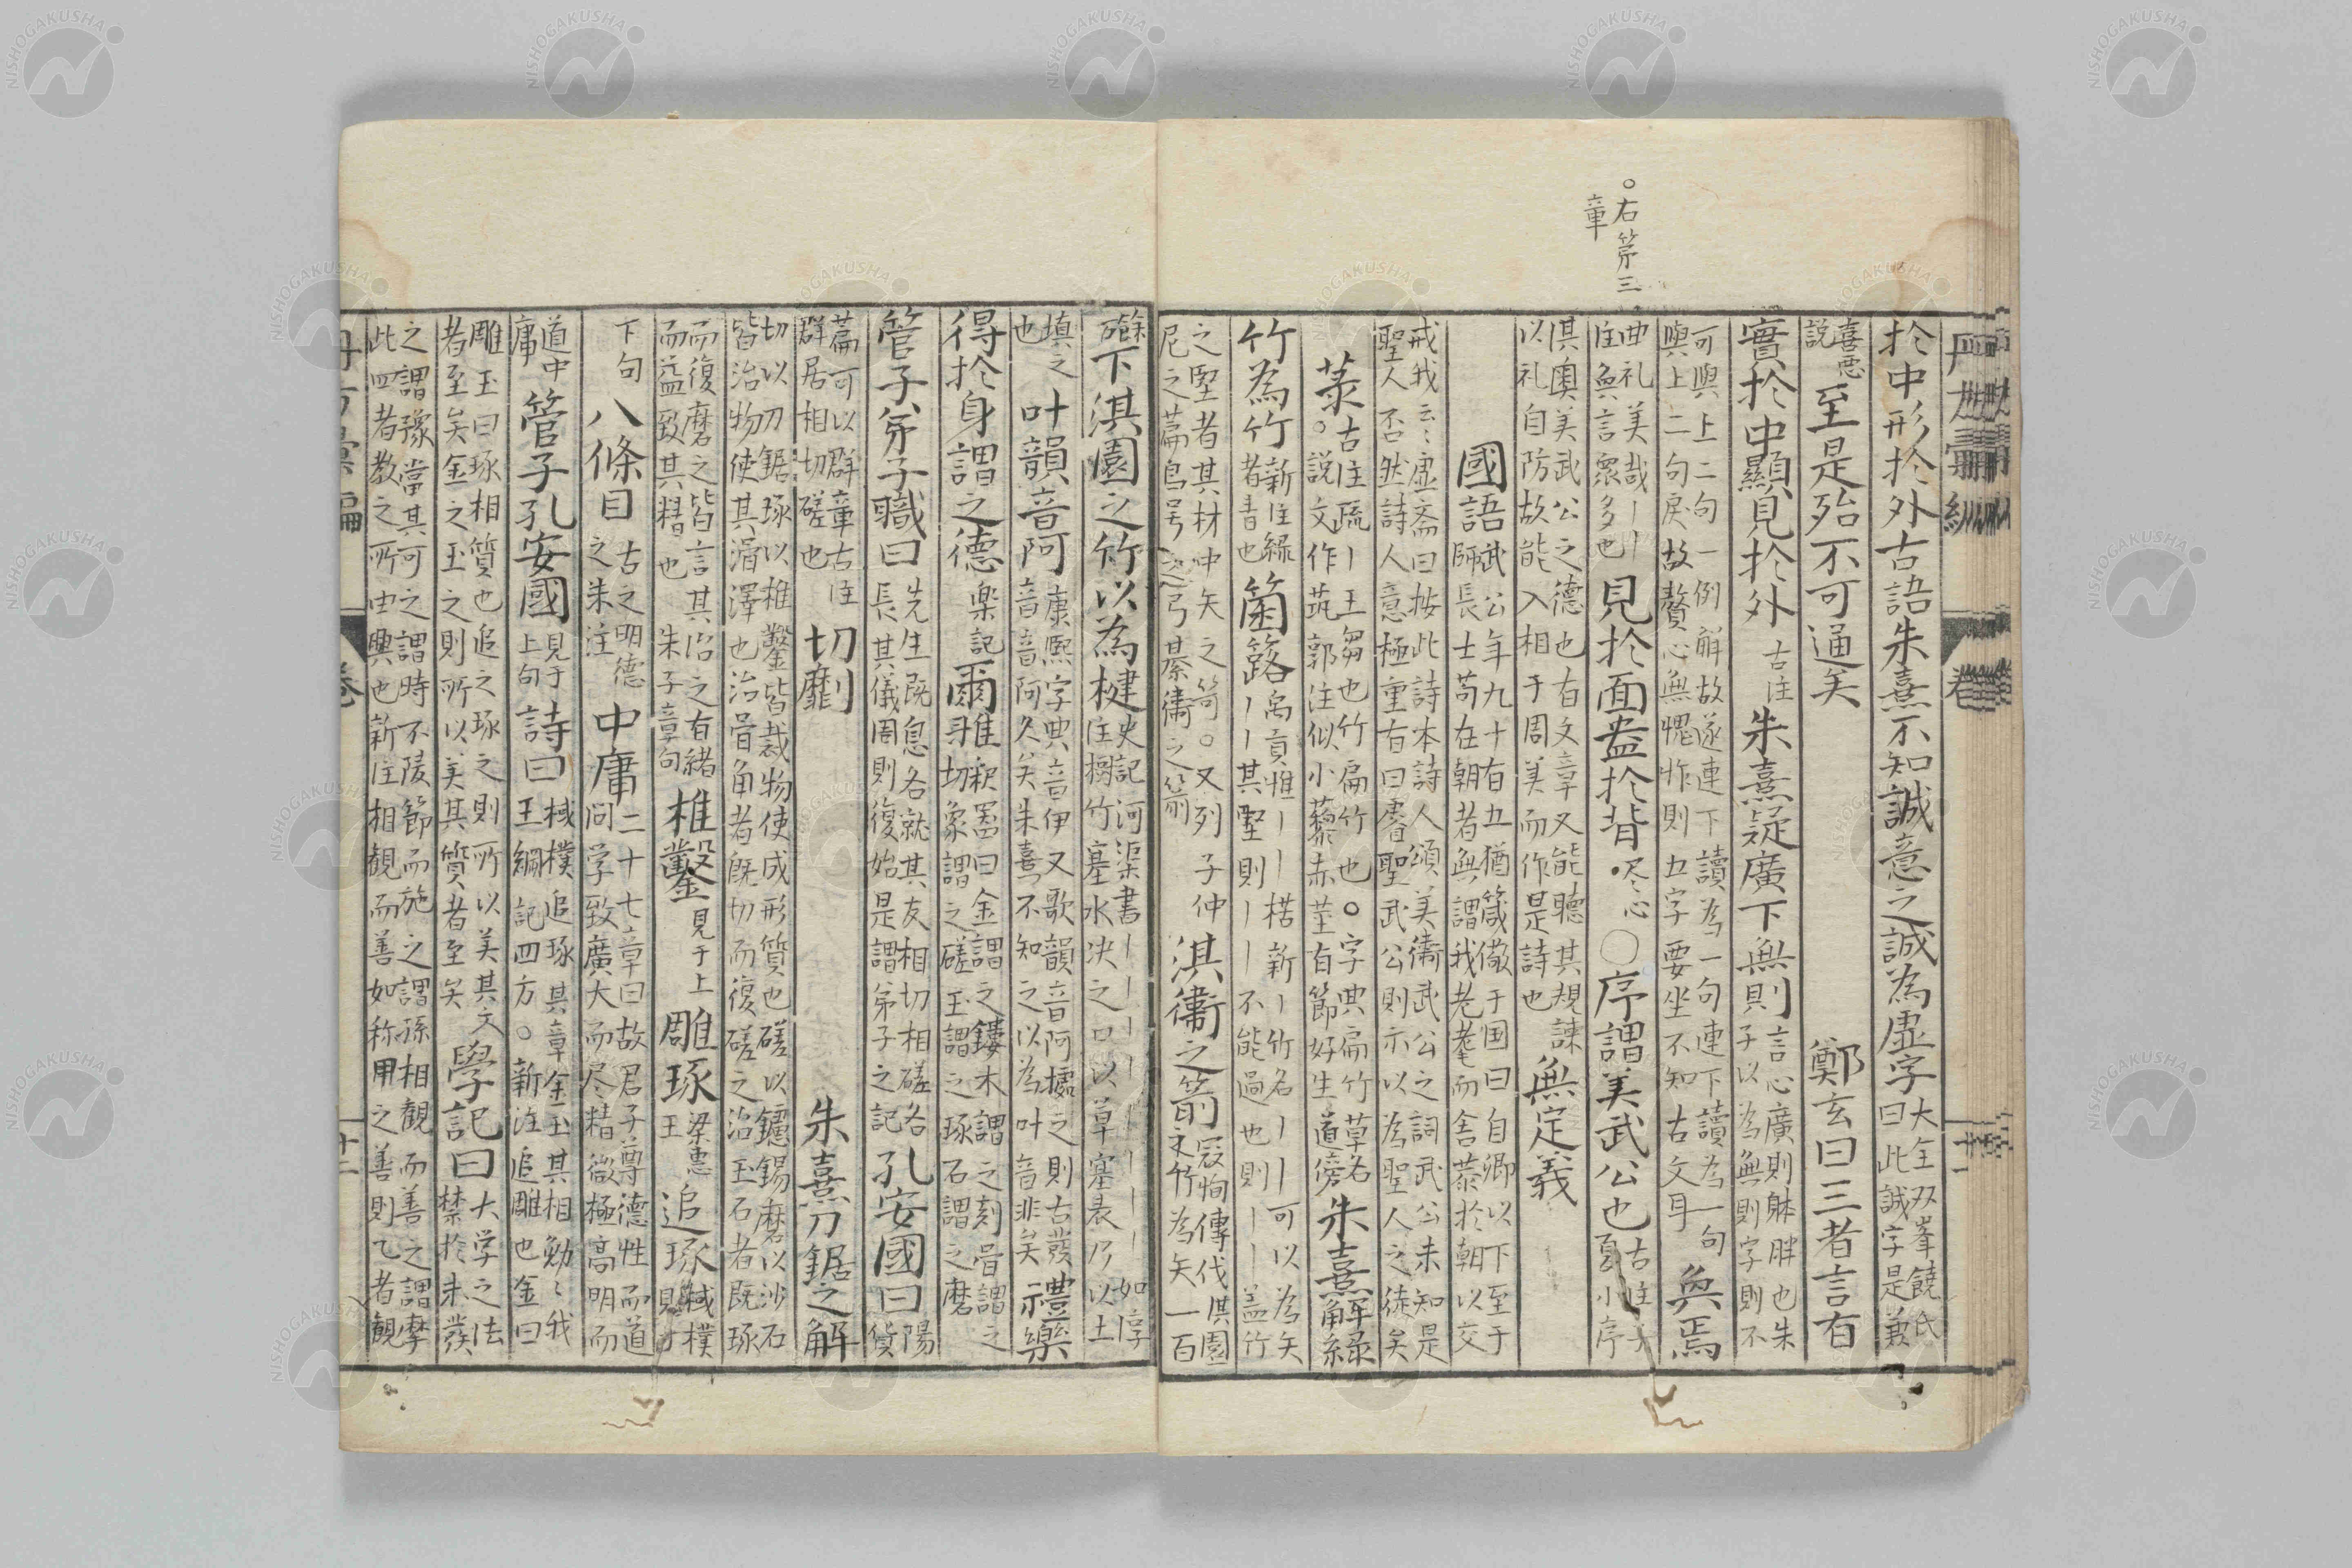 ○右第三
章
於中形於外古語朱熹不知誠意之誠為虛字大全双峯饒氏
曰此誠字是兼
喜悪
説至是殆不可通矣 鄭玄曰三者言有
實於中顯見於外古注朱熹疑廣下無則言心廣則躰胖也朱
子以為無則字則不
可與上二句一例觧故遂連下讀為一句連下讀為一句
與上二句戻故贅心無愧怍則五字要坐不知古文耳與焉
曲礼美哉〡〡
注與言衆多也見於面盎於背尽心○序謂美武公也古注
小序
淇奧美武公之德也有文章又能聽其規諫
以礼自防故能入相于周美而作是詩也無定義
國語武公年九十有五猶箴儆于国曰自卿以下至于
師長士苟在朝者無謂我老耄而舍我於朝以交
戒我云々虛斎曰按此詩本詩人頌美衛武公之詞武公未知是
聖人否然詩人意極重有曰睿聖武公則亦以為聖人之徒矣
菉古注疏〡王芻也竹扁竹也○字典扁竹草名
○説文作茿郭注似小藜赤茎有節好生道傍朱熹解緑
竹為竹新注緑
者青也箘簬〡〡禹貢惟〡〡楛新〡竹名〡〡可以為矢
其堅則〡〡不能過也則〡〡盖竹
之堅者其材中矢之笴○又列子仲
尼之篇烏号之弓綦衛之箭淇衞之箭冦恂傳伐淇園
之竹為矢一百
餘下淇園之竹以為楗史記河渠書〡〡〡〡〡〡〡如淳
注樹竹塞水决之口以草塞裏乃以土
填之
也叶韻音阿康熙字典音伊又歌韻音阿據之則古發
音音阿久矣朱熹不知之以為叶音非矣禮樂
得於身謂之德樂記爾雅釈器曰金謂之鏤木謂之刻骨謂之
切象謂之磋玉謂之琢石謂之磨
管子弟子職曰先生既息各就其友相切相磋各
長其儀周則復始是謂弟子之記孔安國曰貨
篇可以群章古注
群居相切磋也切劘 朱熹刀鋸之解
切以刀鋸琢以椎鑿皆裁物使成形質也磋以鑢鐋磨以沙石
皆治物使其滑澤也治骨角者既切而復磋之治玉石者既琢
而復磨之皆言其治之有緒
而益致其精也 朱子章句椎鑿見于上雕琢梁惠
王追琢棫樸
下句八條目古之明德
之朱注中庸二十七章曰故君子尊德性而道
問学致廣大而尽精微極高明而
道中
庸管子孔安國見于
上句詩曰棫樸追琢其章金玉其相勉々我
王綱記四方○新注追雕也金曰
雕玉曰琢相質也追之琢之則所以美其文
者至矣金之玉之則所以美其質者至矣學記曰大学之法
禁於未發
之謂豫當其可之謂時不陵節而施之謂孫相観而善之謂摩
此四者教之所由興也新注相観而善如称甲之善則乙者観